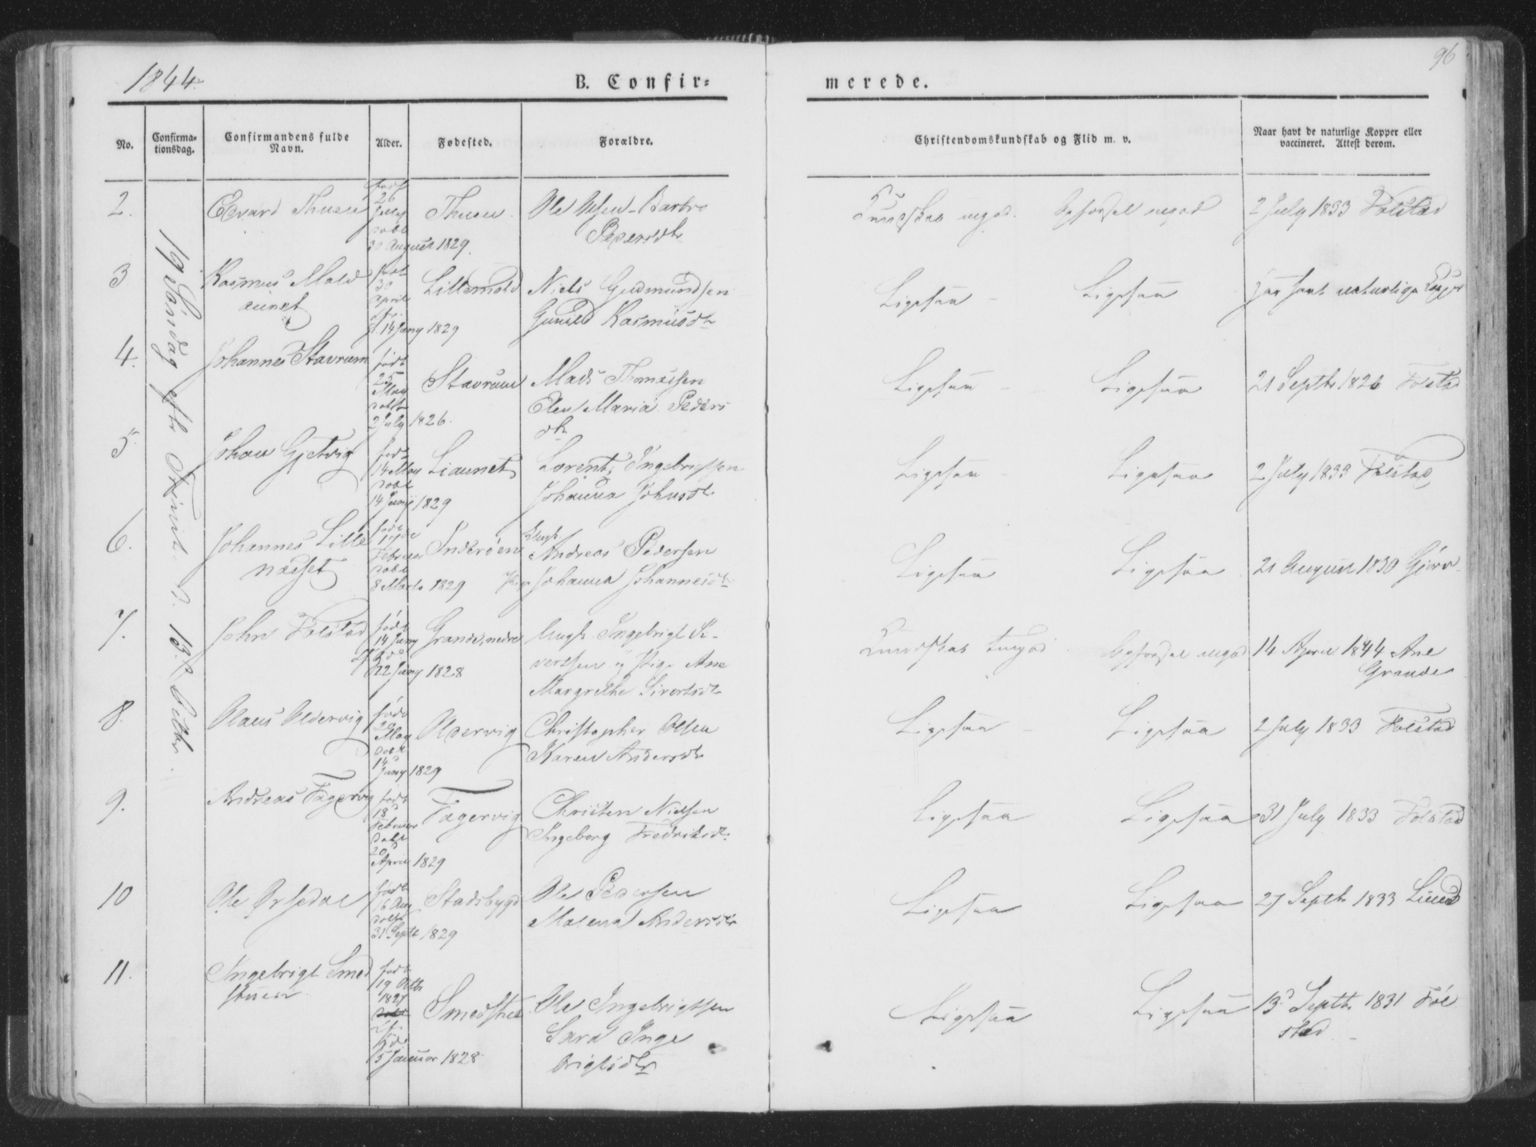 1844
B. Confir=
merede.
96
No.
Confirma-
tionsdag.
Confirmandens fulde
Navn.
Alder.
Fødested.
Forældre.
Christendomskundskab og Flid m. v.
Naar havt de naturlige Kopper eller
vaccineret. Attest derom.
19 Søndag efter Trinit. d. 13de Octbr.
2.
Edvard Thuseth
født
26
July
døbt
30 August 1829.
Thusen
Ole Olsen - Barbro
Pedersdtr
Kundskab mgod. Opførsel mgod
2 July 1833 Følstad
3
Rasmus Mold
aunet
født
30
April
14 Juny 1829
Lillemold
Niels Gudmundsen
Gunild Rasmusdtr
Ligesaa - Ligesaa
har havt naturlige Kopper
4.
Johannes Stavrum
født
25
May
døbt
2 July 1826.
Stavrum
Mads Thomesen
Elen Maria Peders
dtr
Ligesaa - Ligesaa
21 Septbr 1826 Følstad
5.
Johan Gjetvig
født
14 May
døbt
14 Juny 1829
Liaunet
Lorents Ingebrigtsen
Johanna Johnsdtr
Ligesaa - Ligesaa
2 July 1833 Følstad
6.
Johannes Lille
næset
født
Februar
døbt
8 Marts 1829
Inderøen
Ungk.
Andreas Pedersen
Pige Johanna Johannesdtr
Ligesaa Ligesaa
21 August 1830
7.
John Følstad
født
14 Juny
døbt
22 Juny 1828
Grande, nedre
Ungk. Ingebrigt Si-
vertsen og Pige Ane
Margrethe Sivertsdtr
Kundskab tmgod Opførsel mgod
14 April 1844 Ane
Grande
8.
Claus Oldervig
født
20
May
døbt
14de
Juny 1829
Oldervig
Christopher Olsen
Karen Andersdtr
Ligesaa - Ligesaa
2 July 1833 Følstad
9.
Andreas Fagervig
født
18
Februar
døbt
20
April 1829
Fagervig
Christen Nielsen
Ingeborg Fredriksdtr.
Ligesaa Ligesaa
31 July 1833 Følstad
10
Ole Ørsedal
født
6 Aug
døbt
31 Septbr 1829
Stadsbygd
Ole Pedersen
Malena Andersdtr
Ligesaa Ligesaa
27 Septbr 1833 Lund
11.
Ingebrigt Smed
stuen
født
19 Octbr
1827
døbt
5 Januar 1828
Smedstuen
Ole Ingebrigtsen
Sara Inge
brigtsdtr
Ligesaa Ligesaa
13de Septbr 1831 Føl
stad